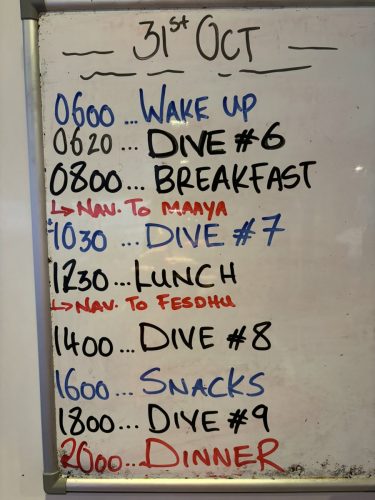 — 31st OCT —
0600 ... WAKE UP
0620 ... DIVE #6
0800... BREAKFAST
↳ NAV. TO MAAYA
1030 ... DIVE #7
1230... LUNCH
↳ NAV. TO FESDHU
1400 ... DIVE #8
1600... SNACKS
1800... DIVE #9
2000... DINNER